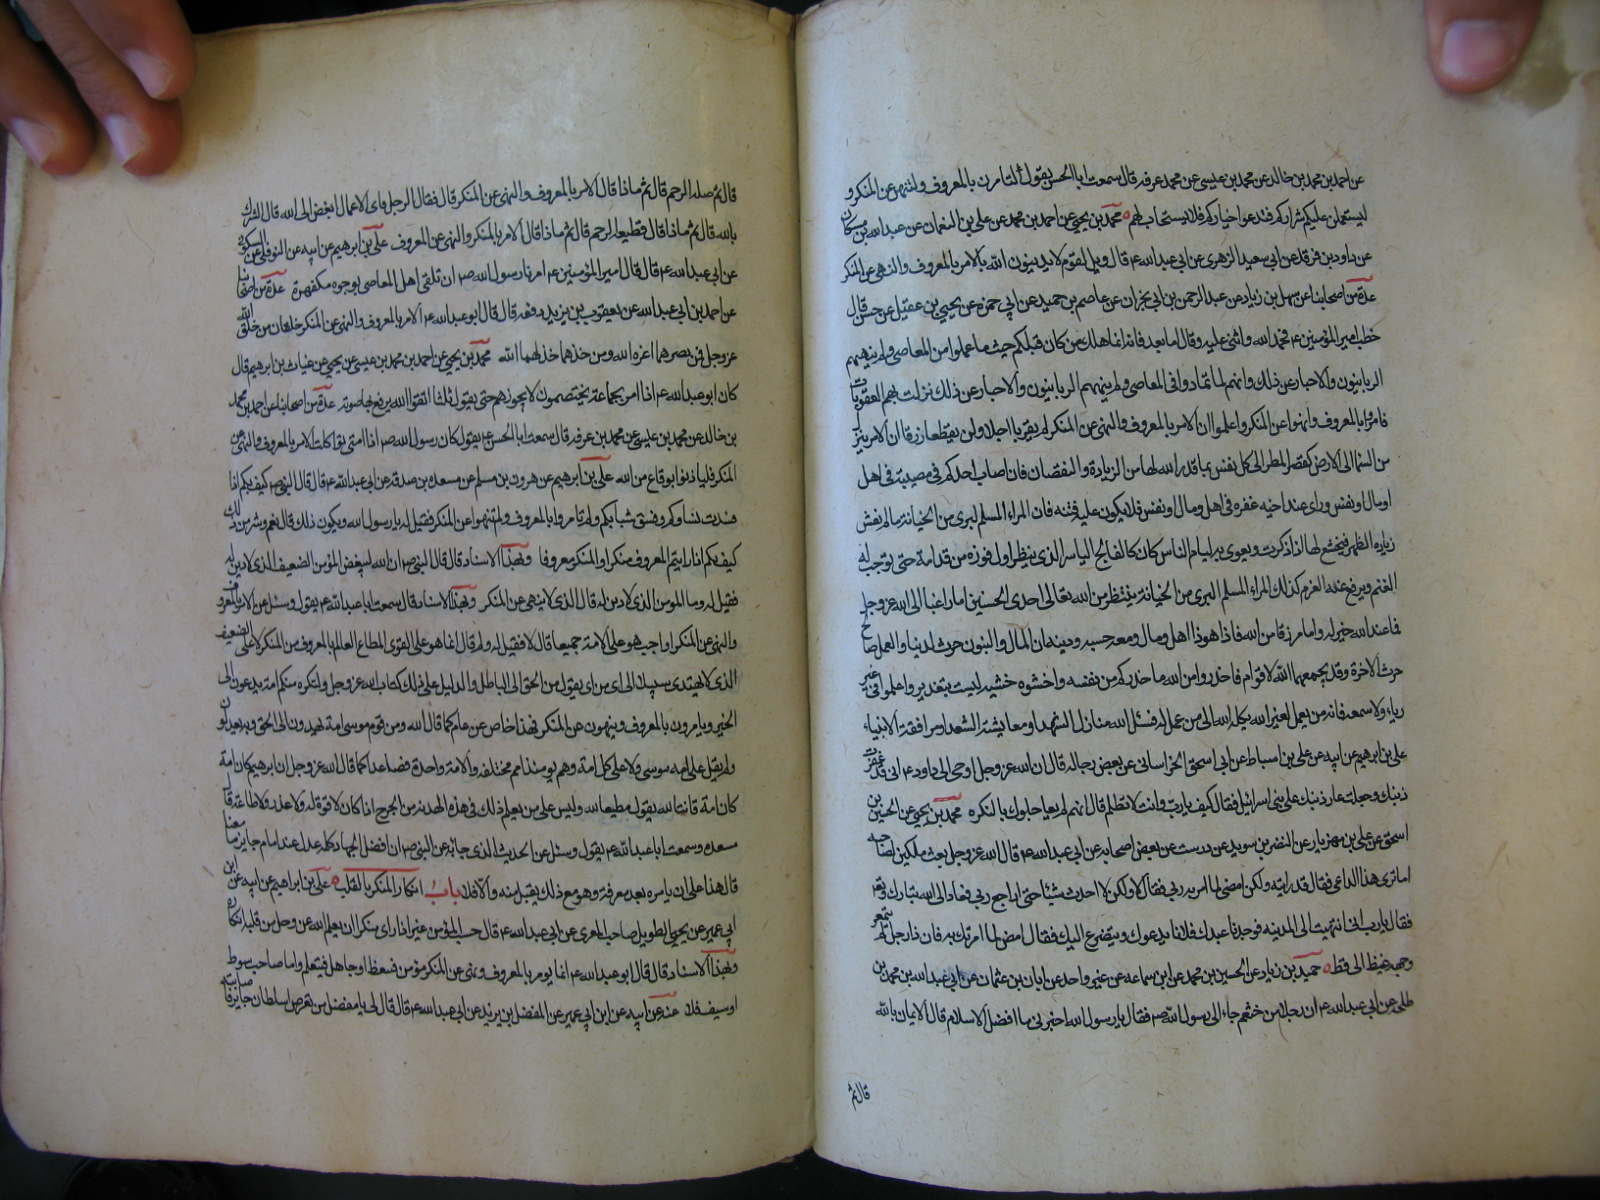 عن احمد بن محمد بن خالد عن محمد بن عيسى عن محمد عرفه قال سمعت ابا الحسن يقول لتامرن بالمعروف ولتنهن عن المنكر و
ليستعملن عليكم شراركم فتدعوا خياركم فلا يستجاب لهم محمد بن يحيى عن احمد بن محمد عن علي بن النعمان عن عبد الله بن مسكان
عن داود بن فرقد عن ابي سعيد الزهري عن ابي عبد الله ع قال ويل لقوم لا يدينون الله بالامر بالمعروف والنهي عن المنكر
عدة من اصحابنا عن سهل بن زياد عن عبد الرحمن بن ابي نجران عن عاصم بن حميد عن ابي حمزه عن يحيى بن عقيل عن حسن قال
خطب امير المؤمنين ع فحمد الله واثنى عليه وقال اما بعد فانه انما هلك من كان قبلكم حيث ما عملوا من المعاصي ولم ينههم
الربانيون والاحبار عن ذلك وانهم لما تمادوا في المعاصي ولم ينههم الربانيون والاحبار عن ذلك نزلت بهم العقوبات
فامروا بالمعروف وانهوا عن المنكر واعلموا ان الامر بالمعروف والنهي عن المنكر لم يقربا اجلا ولن يقطعا رزقا ان الامر ينزل
من السماء الى الارض كقطر المطر الى كل نفس بما قدر الله لها من الزيادة والنقصان فان اصاب احدكم في مصيبة في اهل
او مال او نفس وراى عند اخيه غفره في اهل ومال ونفس فلا يكون عليه فتنه فان المراء المسلم لبرى من الخيانة ما لم يغش
الظهر فيخشع لها اذا ذكرت ويغوى بها لئام الناس كان كالفالج الياسر الذي ينتظر اول فوزه من قداحه حتى توجب له
المغنم ويرفع عنه المغرم كذلك المراء المسلم البري من الخيانة ينتظر من الله تعالى احدى الحسنيين اما راعيا الى الله عز وجل
فما عند الله خير له واما رزقا من الله فاذا هو ذا اهل ومال ومعه حسبه ودينه ان المال والبنون حرث الدنيا والعمل صالح
حرث الاخرة وقد يجمعهما الله لاقوام فاحذروا من الله ما حذركم من نفسه واخشوه خشيه ليست بتعذير واعملوا في غير
رياء ولا سمعه فانه من يعمل لغير الله يكله الله الى من عمل له فنسئل الله منازل الشهدا ومعايشة السعدا ومرافقة الانبياء
علي بن ابرهيم عن ابيه عن علي بن اسباط عن ابي اسحق الخراساني عن بعض رجاله قال ان الله عز وجل اوحى الى داود ع اني قد غفرت
ذنبك وجعلت عار ذنبك على بني اسرائيل فقال كيف يا رب وانت لا تظلم قال انهم لم يعاجلوك بالنكره محمد بن يحيى عن الحسين بن
اسحق عن علي بن مهزيار عن النضر بن سويد عن درست عن بعض اصحابه عن ابي عبد الله ع قال الله عز وجل بعث ملكين
اما ترى هذا الداعي فقال قد رايته ولكن امضي لما امر به ربي فقال لا ولكن لا احدث شيئا حتى اراجع ربي فعاد الى الله تبارك وتعالى
فقال يا رب اني انتهيت الى المدينه فوجدت عبدك فلانا يدعوك ويتضرع اليك فقال امض لما امرتك به فان ذا رجل لم يتمعر
وجهه غيظا لي قط حميد بن زياد عن الحسين بن محمد عن ابن سماعه عن غير واحد عن ابان بن عثمان عن ابي عبد الله بن محمد بن
طلحه عن ابي عبد الله ع ان رجلا من خثعم جاء الى رسول الله ص فقال يا رسول الله اخبرني ما افضل الاسلام قال الايمان بالله
قال ثم
قال ثم صله الرحم قال ثم ماذا قال الامر بالمعروف والنهي عن المنكر قال فقال الرجل فاي الاعمال ابغض الى الله قال الشرك
بالله قال ثم ماذا قال قطيعه الرحم قال ثم ماذا قال الامر بالمنكر والنهي عن المعروف علي بن ابرهيم عن ابيه عن النوفلي عن السكوني
عن ابي عبد الله ع قال قال امير المؤمنين ع امرنا رسول الله ص ان نلقى اهل المعاصي بوجوه مكفهرة عدة من اصحابنا
عن احمد بن ابي عبد الله عن يعقوب بن يزيد رفعه قال قال ابو عبد الله ع الامر بالمعروف والنهي عن المنكر خلقان من خلق الله
عز وجل فمن نصرهما اعزه الله ومن خذلهما خذله الله محمد بن يحيى عن احمد بن محمد بن عيسى عن يحيى عن غياث بن ابرهيم قال
كان ابو عبد الله ع اذا مر بجماعة يختصمون لا يجوزهم حتى يقول ثلثا اتقوا الله يرفع بها صوته عدة من اصحابنا عن احمد بن محمد
بن خالد عن محمد بن عيسى عن محمد بن عرفه قال سمعت ابا الحسن ع يقول كان رسول الله ص اذا امتي تواكلت الامر بالمعروف والنهي عن
المنكر فلياذنوا بوقاع من الله علي بن ابرهيم عن هرون بن مسلم عن مسعده بن صدقه عن ابي عبد الله ع قال قال النبي ص كيف بكم اذا
فسدت نساؤكم وفسق شبابكم ولم تامروا بالمعروف ولم تنهوا عن المنكر فقيل له يا رسول الله ويكون ذلك قال نعم وشر من ذلك
كيف بكم اذا رايتم المعروف منكرا والمنكر معروفا وبهذا الاسناد قال قال النبي ص ان الله ليبغض المؤمن الضعيف الذي لا دين له
فقيل له وما المؤمن الذي لا دين له قال الذي لا ينهى عن المنكر وبهذا الاسناد قال سمعت ابا عبد الله ع يقول وسئل عن الامر بالمعروف
والنهي عن المنكر اواجب هو على الامة جميعا قال لا فقيل له ولم قال انما هو على القوي المطاع العالم بالمعروف من المنكر لا على الضعيف
الذي لا يهتدي سبيلا الى اي من اي يقول من الحق الى الباطل والدليل على ذلك كتاب الله عز وجل ولتكن منكم امة يدعون الى
الخير ويامرون بالمعروف وينهون عن المنكر فهذا خاص غير عام كما قال الله ومن قوم موسى امة يهدون بالحق وبه يعدلون
ولم يقل على امه موسى ولا على كل امة وهم يومئذ امم مختلفه والامة واحدة فصاعدا كما قال الله عز وجل ان ابرهيم كان امة
كان امة قانتا لله يقول مطيعا لله وليس على من يعلم ذلك في هذه الهدنه من الحرج اذا كان لا قوة له ولا عذر ولا طاعة قال
مسعده وسمعت ابا عبد الله ع يقول وسئل عن الحديث الذي جاء عن النبي ص ان افضل الجهاد كلمه عدل عند امام جاير ما معناه
قال هذا على ان يامره بعد معرفته وهو مع ذلك يقبل منه والا فلا باب انكار المنكر بالقلب علي بن ابراهيم عن ابيه عن ابن
ابي عمير عن يحيى الطويل صاحب المقري عن ابي عبد الله ع قال حسب المؤمن عزا اذا راى منكرا ان يعلم الله عز وجل من قلبه انكاره
وبهذا الاسناد قال قال ابو عبد الله ع انما يومر بالمعروف وينهى عن المنكر مؤمن فيتعظ او جاهل فيتعلم واما صاحب سوط
او سيف فلا عنه عن ابيه عن ابن ابي عمير عن المفضل بن يزيد عن ابي عبد الله ع قال قال لي يا مفضل من تعرض لسلطان جاير فاصابته